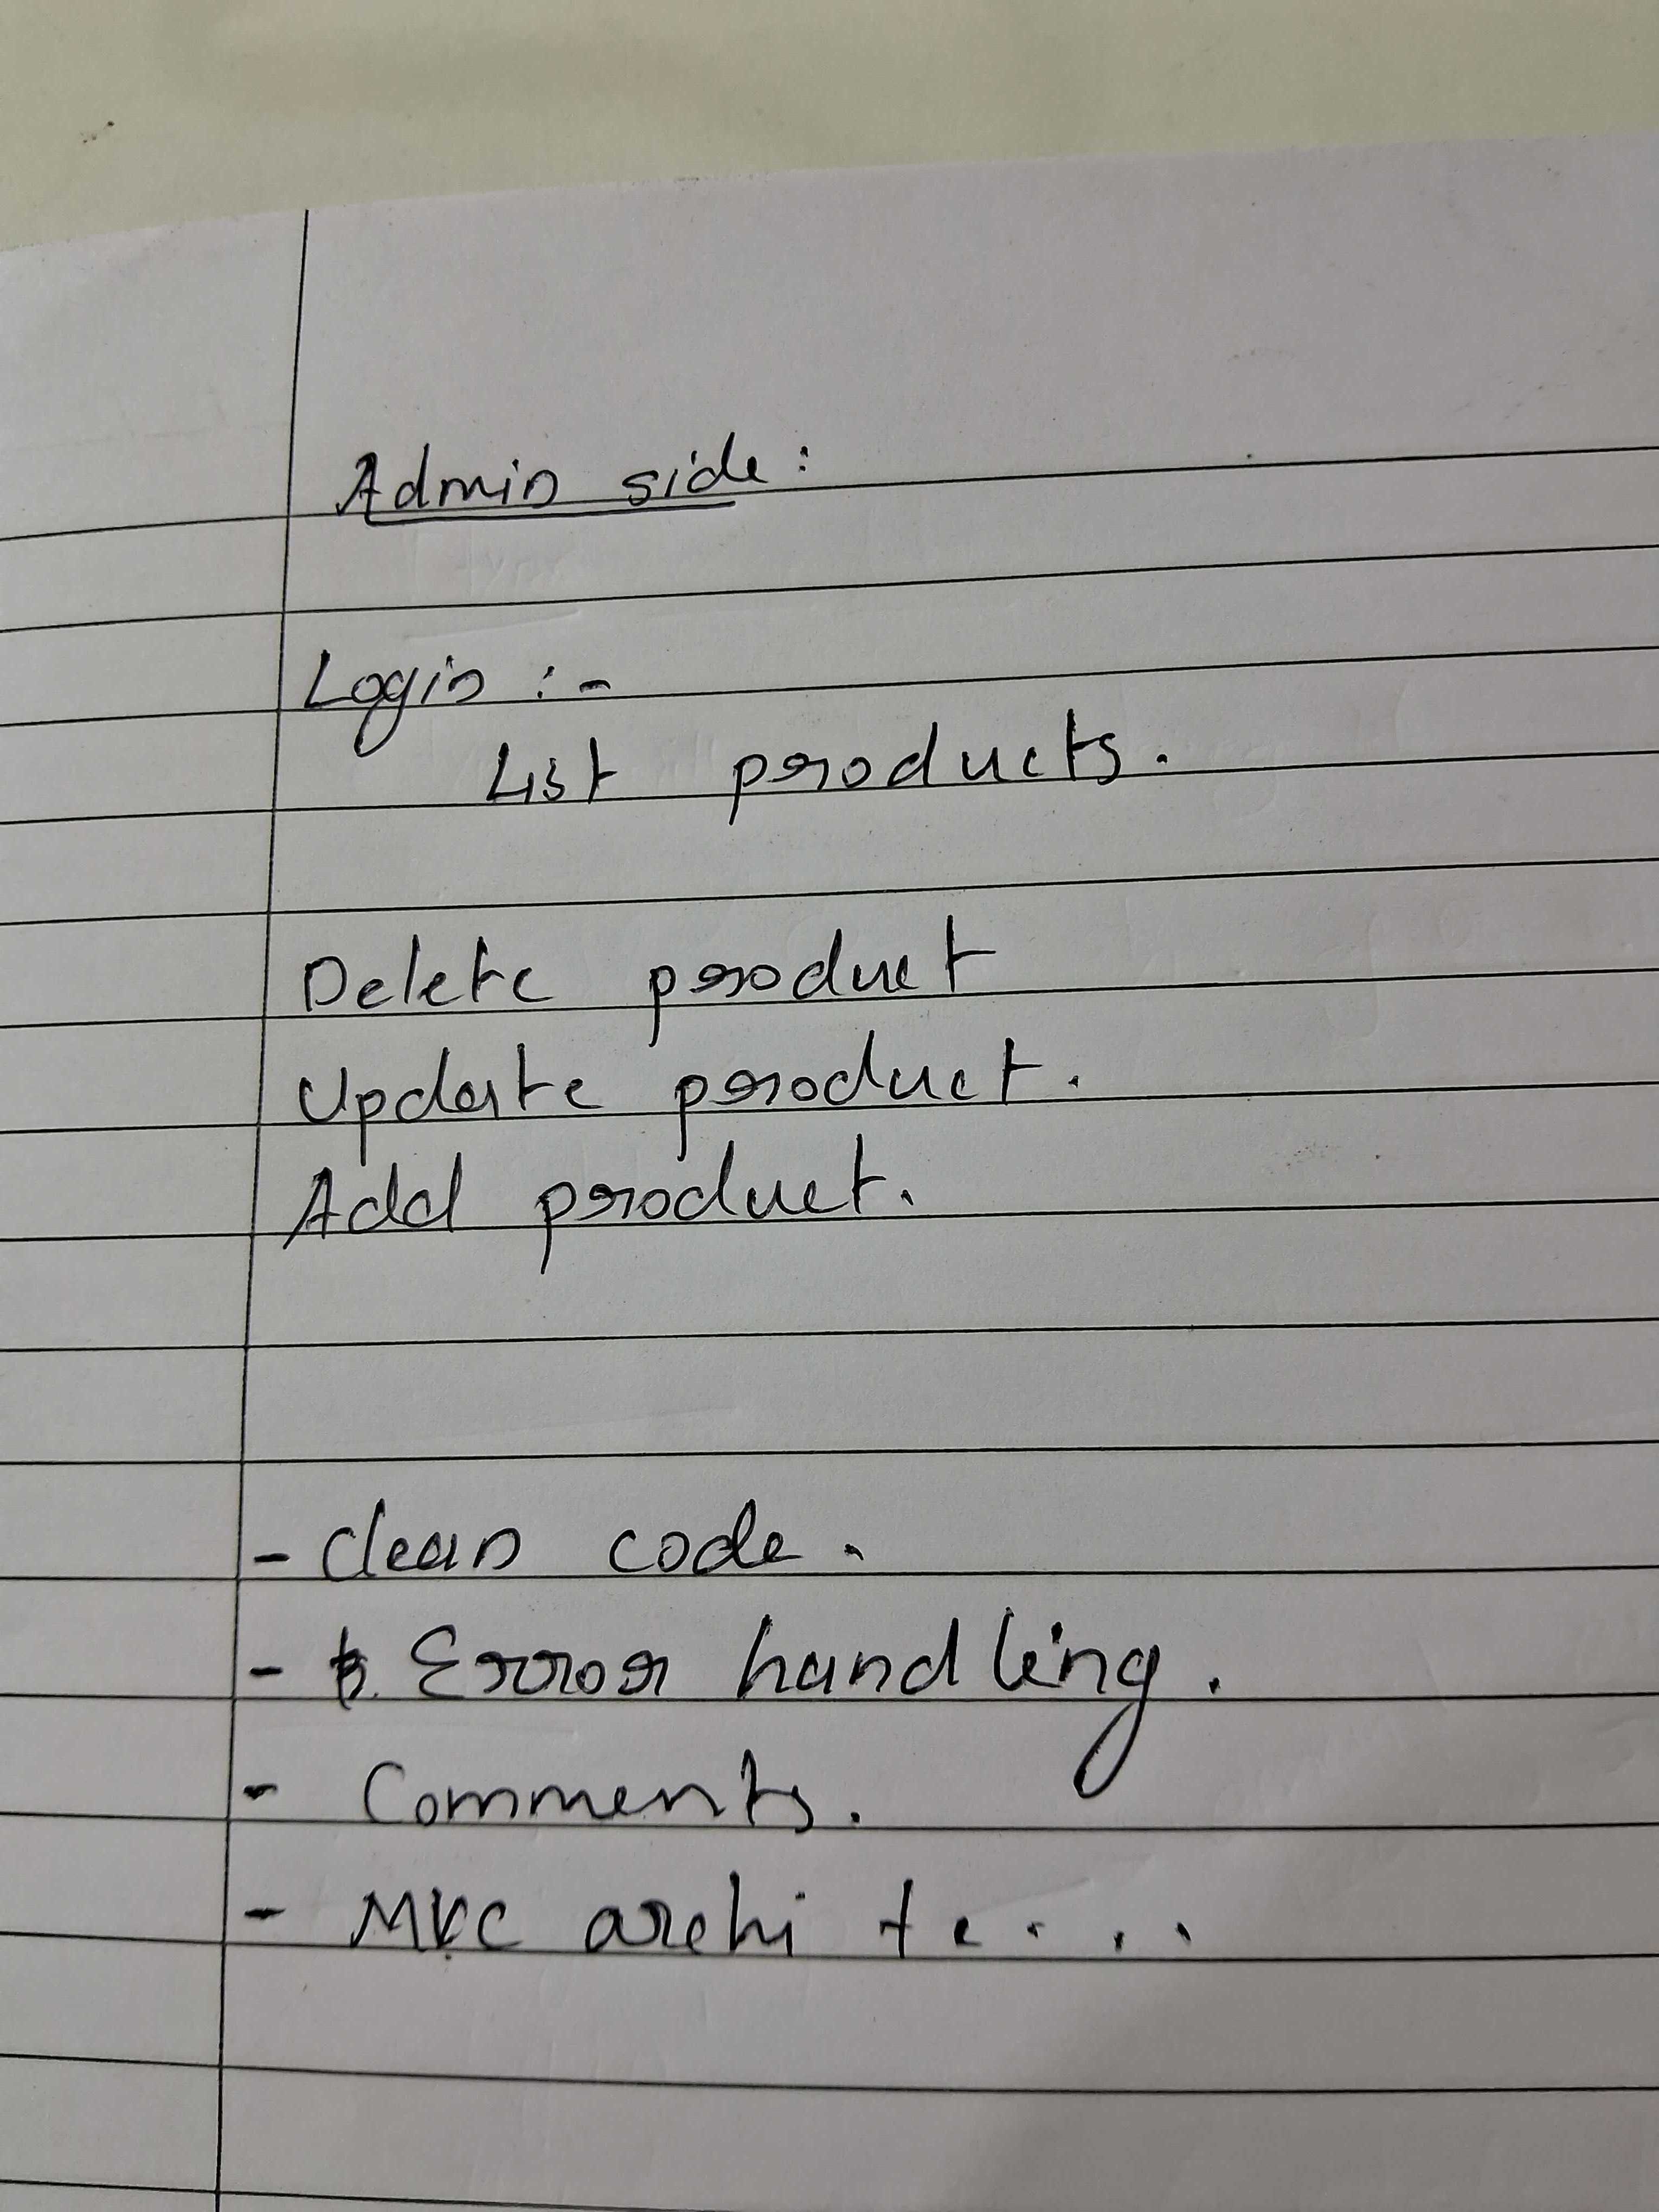 Admin side:
Login :-
List products.
Delete product
Update product.
Add product.
- Clean code.
- Error handling.
- Comments.
- MVC archi te...